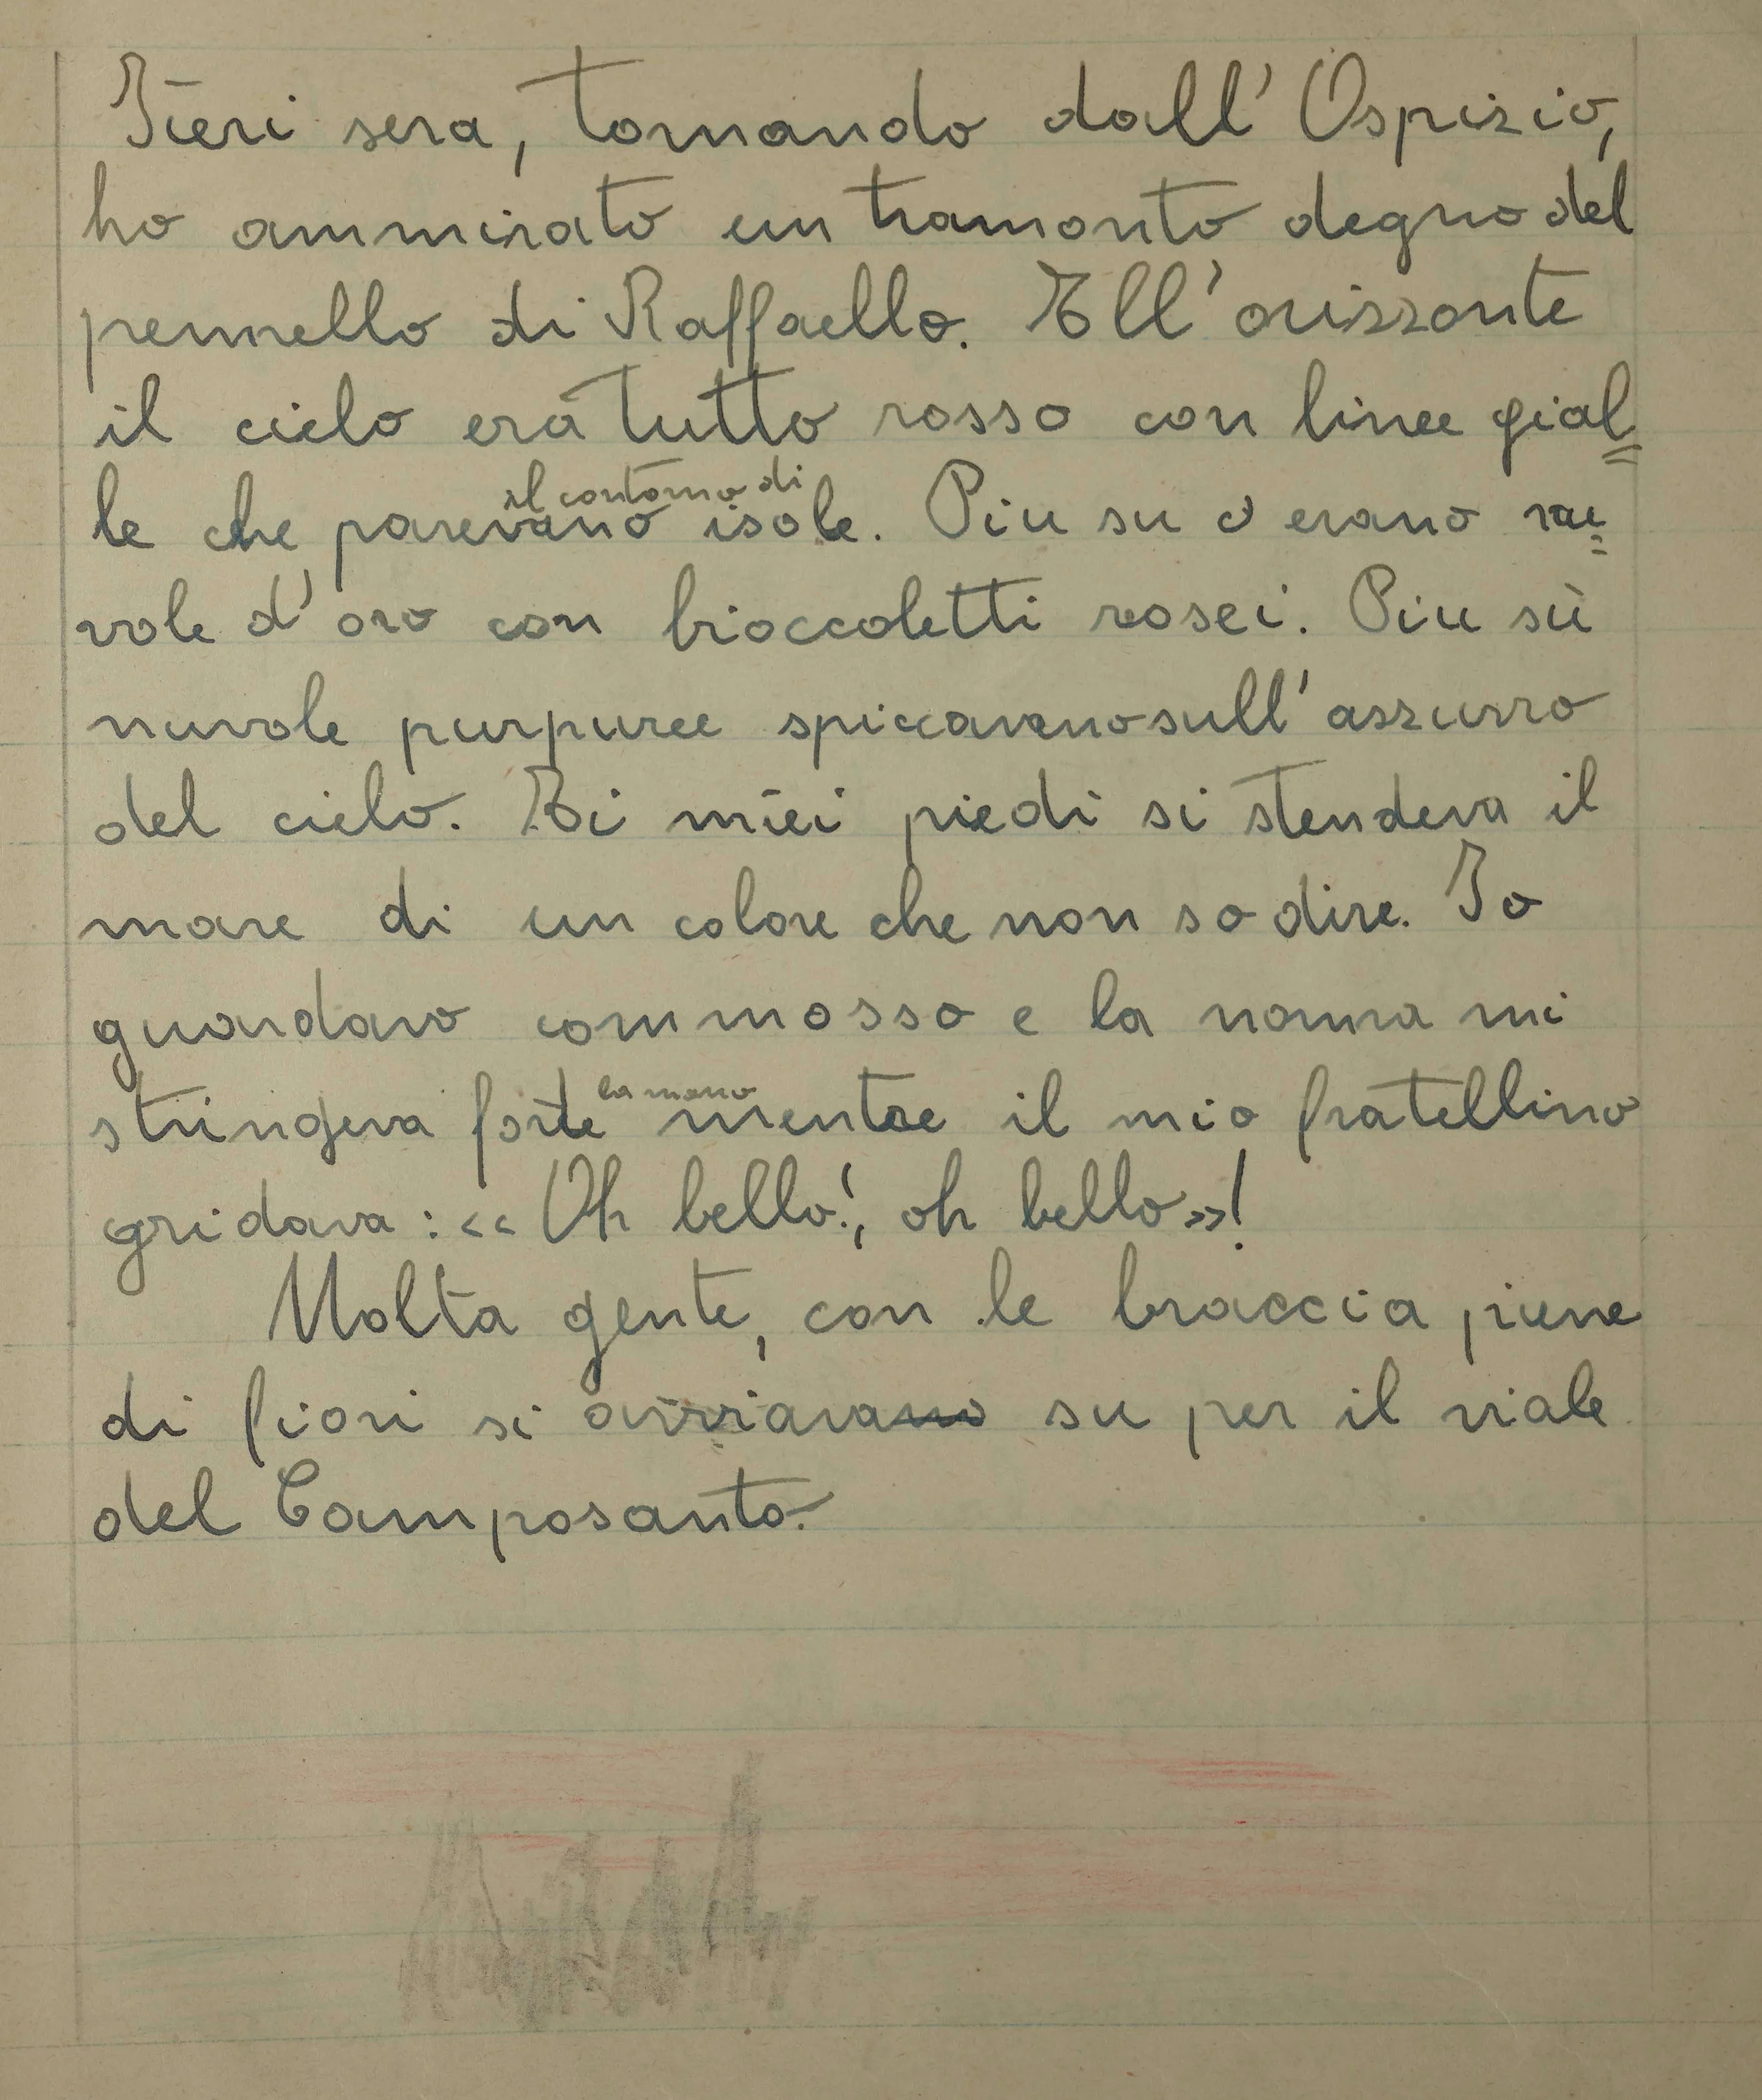 Iieri sera, tornando dall'Ospizio,
ho ammirato un tramonto degno del
pennello di Raffaello. All'orizzonte
il cielo era tutto rosso con linee gial=
il contorno di
le che parevano isole. Piu su c'erano nu=
vole d'oro con bioccoletti rosei. Piu sù
nuvole purpuree spiccavano sull'azzurro
del cielo. Ai miei piedi si stendeva il
mare di un colore che non so dire. Io
guardavo commosso e la nonna mi
la mano
stringeva forte mentre il mio fratellino
gridava: «Oh bello!, oh bello»!
Molta gente, con le braccia piene
di fiori si avviavano su per il viale
del Camposanto.